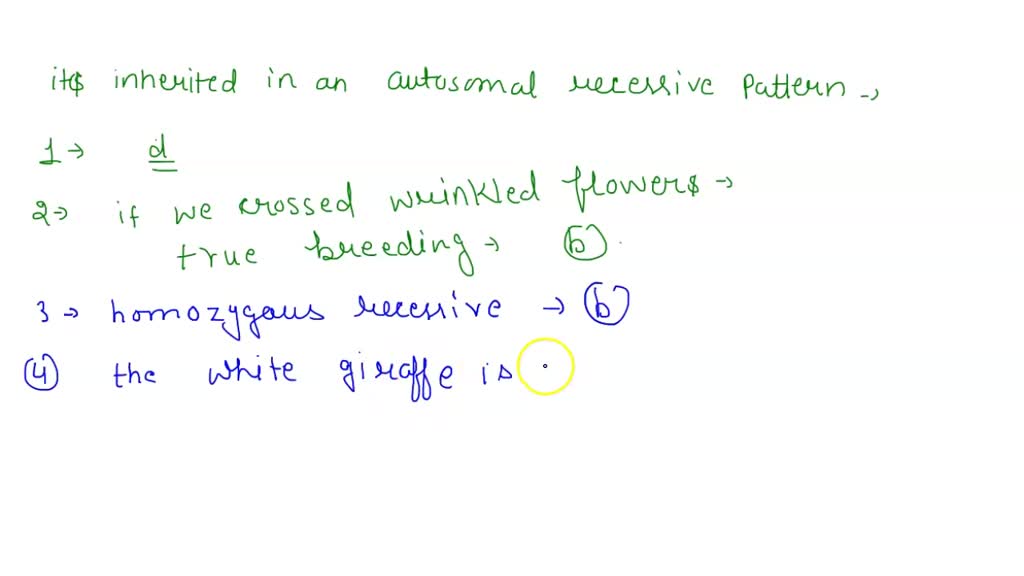 it$ inherited in an autosomal recessive pattern →
1→ d
2→ if we crossed wrinkled flower$ →
true breeding → b .
3→ homozygous recessive → b
4 the white giraffe is